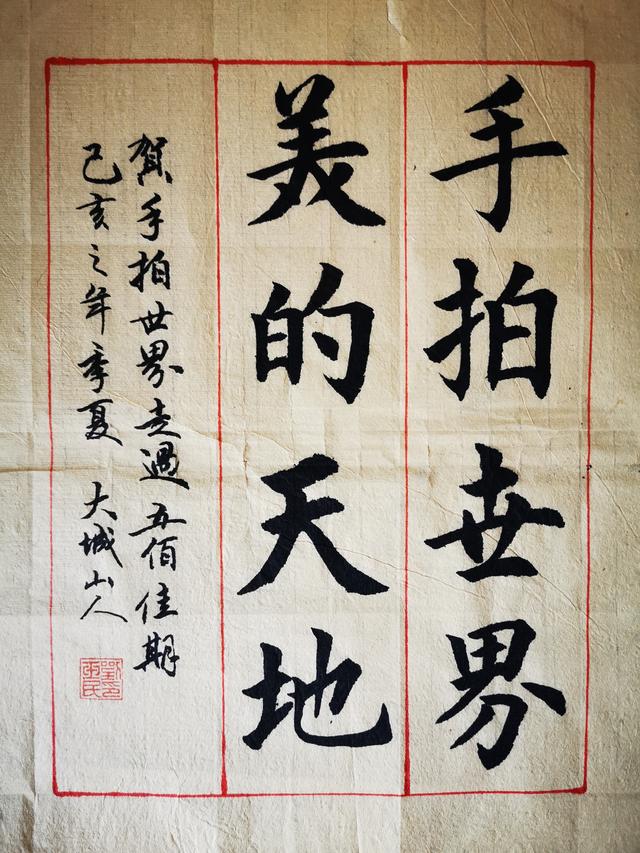 手拍世界
美的天地
賀手拍世界走過五佰佳期
己亥之年季夏 大城山人